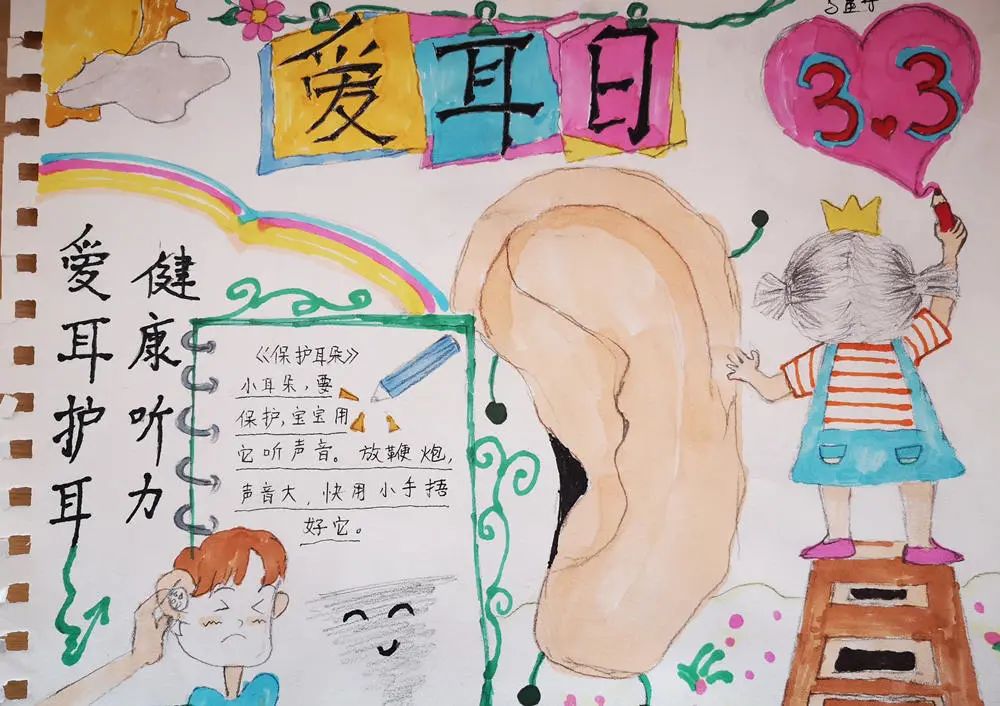 爱耳日
3.3
爱耳护耳
健康听力
《保护耳朵》
小耳朵，要
保护，宝宝用
它听声音。放鞭炮，
声音大，快用小手捂
好它。